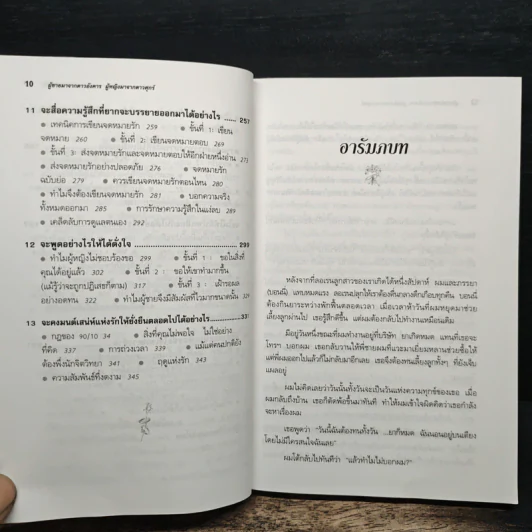 10 ผู้ชายมาจากดาวอังคาร ผู้หญิงมาจากดาวศุกร์
11 จะสื่อความรู้สึกที่ยากจะบรรยายออกมาได้อย่างไร ...... 257
● เทคนิคการเขียนจดหมายรัก 259 ● ขั้นที่ 1: เขียน
จดหมาย 260 ● ขั้นที่ 2: เขียนจดหมายตอบ 269
● ขั้นที่ 3: ส่งจดหมายรักและจดหมายตอบให้อีกฝ่ายหนึ่งอ่าน 274
● ส่งจดหมายรักอย่างปลอดภัย 276 ● จดหมายรัก
ฉบับย่อ 279 ● ควรเขียนจดหมายรักตอนไหน 280
● ทำไมจึงต้องเขียนจดหมายรัก 281 ● บอกความจริง
ทั้งหมดออกมา 285 ● การรักษาความรู้สึกในแง่ลบ 289
● เคล็ดลับการดูแลตนเอง 292
12 จะพูดอย่างไรให้ได้ดั่งใจ 299
● ทำไมผู้หญิงไม่ชอบร้องขอ 299 ● ขั้นที่ 1 : ขอในสิ่งที่
คุณได้อยู่แล้ว 302 ● ขั้นที่ 2 : ขอให้เขาทำมากขึ้น
(แม้รู้ว่าจะถูกปฏิเสธก็ตาม) 318 ● ขั้นที่ 3 : เฝ้ารอผล
อย่างอดทน 322 ● ทำไมผู้ชายจึงมีสัมผัสที่ไวมากขนาดนั้น 32
13 จะคงมนต์เสน่ห์แห่งรักให้ยั่งยืนตลอดไปได้อย่างไร 331
● กฎของ 90/10 34 ● สิ่งที่คุณไม่พอใจ ไม่ใช่อย่าง
ที่คิด 337 ● การถ่วงเวลา 339 ● แม้แต่คนปกติยัง
ต้องพึ่งนักจิตวิทยา 341 ● ฤดูแห่งรัก 343
● ความสัมพันธ์ที่งดงาม 345
อารัมภบท
หลังจากที่ลอเรนลูกสาวของเราเกิดได้หนึ่งสัปดาห์ ผมและภรรยา
(บอนนี่) แทบหมดแรง ลอเรนปลุกให้เราต้องตื่นกลางดึกเกือบทุกคืน บอนนี่
ต้องกินยาระงับปวด เมื่อเวลาห้าวันที่ผมหยุดมาช่วย
เลี้ยงลูกผ่านไป เธอรู้สึกดีขึ้น ผมต้องกลับไปทำงานเหมือนเดิม
มีอยู่วันหนึ่งขณะที่ผมทำงานอยู่ที่บริษัท ยาเกิดหมด แทนที่เธอจะ
โทรฯ บอกผม เธอกลับวานให้พี่ชายผมที่แวะมาเยี่ยมหลานช่วยซื้อให้
แต่พี่ผมออกไปแล้วก็ไม่กลับมาอีกเลย เธอจึงต้องทนเลี้ยงลูกทั้งๆ ที่ยังเจ็บ
แผลอยู่
ผมไม่คิดเลยว่าวันนั้นทั้งวันจะเป็นวันแห่งความทุกข์ของเธอ เมื่อ
ผมกลับถึงบ้าน เธอก็ตัดพ้อขึ้นมาทันที ทำให้ผมเข้าใจผิดคิดว่าเธอกำลัง
จะหาเรื่องผม
เธอพูดว่า "วันนี้ฉันต้องทนทั้งวัน ...ยาก็หมด ฉันนอนอยู่บนเตียง
โดยไม่มีใครสนใจฉันเลย"
ผมโต้กลับไปทันทีว่า "แล้วทำไมไม่บอกผม?"